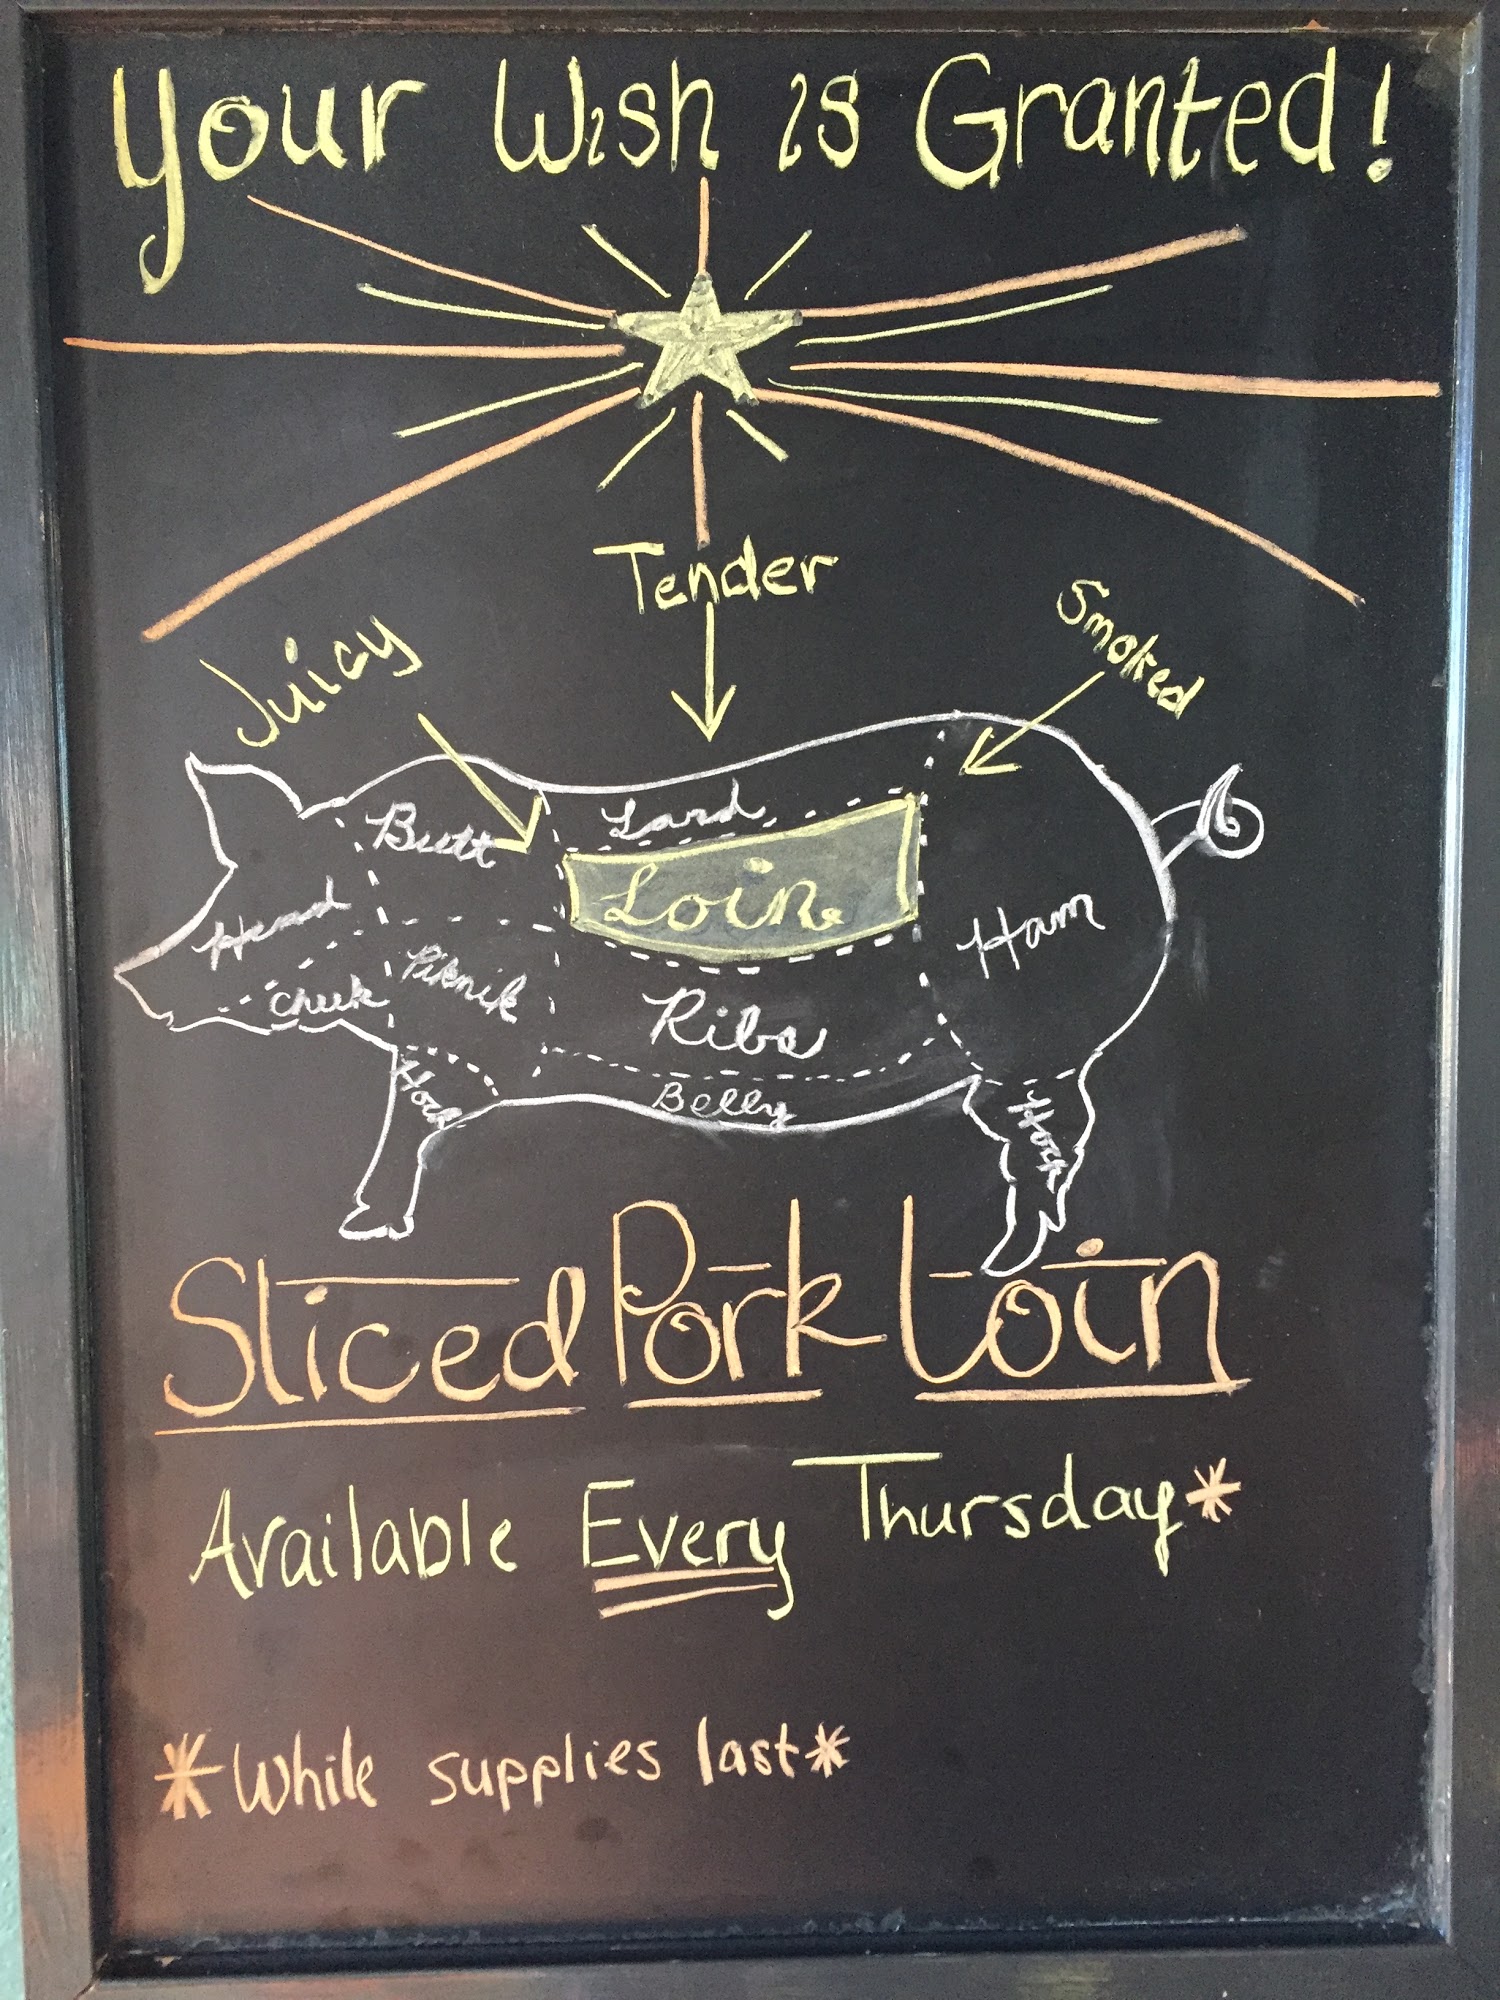 Your Wish is Granted!
Tender
Juicy
Smoked
Lard
Butt
Loin
Head
Ham
Piknik
Cheek
Ribs
Belly
Hock
Hock
Sliced Pork Loin
Available Every Thursday*
*While supplies last*